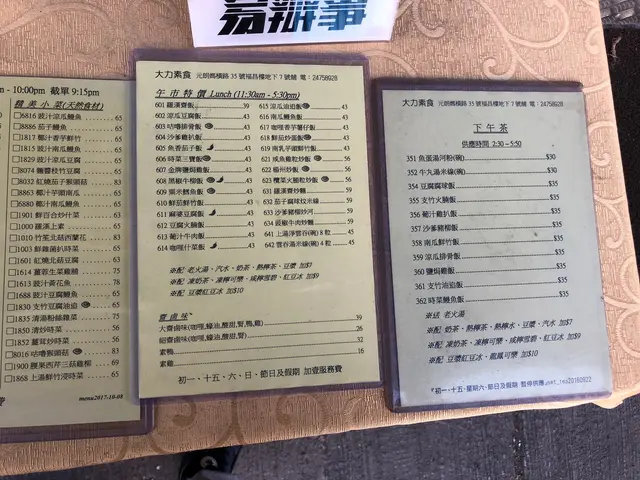 - 10:00pm 截單 9:15pm
精 美 小 菜 (天然食材)
□6816 豉汁涼瓜鰻魚 ...... 65
□8886 茄子鰻魚 ...... 65
□1817 椰汁香芋鮮竹 ...... 65
□1805 豉汁南瓜鰻魚 ...... 65
□1829 豉汁涼瓜豆腐 ...... 65
□8074 麵醬枝竹豆腐 ...... 65
□8032 紅燒茄子猴頭菇 ...... 65
□8863 椰汁芋頭南瓜 ...... 65
□6880 椰汁南瓜鰻魚 ...... 65
□1901 鮮百合炒什菜 ...... 65
□1000 羅漢上素 ...... 65
□1010 竹笙北菇西蘭花 ...... 83
□1003 鮮雜菌扒時菜 ...... 65
□1601 紅燒北菇豆腐 ...... 65
□1614 薑蓉生菜雞脯 ...... 75
□1613 豉汁黃花魚 ...... 78
□1688 豉汁豆腐鰻魚 ...... 65
□1830 支竹豆腐油追 ...... 65
□1835 清湯粉絲雜菜 ...... 65
□1850 清炒時菜 ...... 56
□1852 薑茸炒時菜 ...... 56
□8016 咕嚕猴頭菇 ...... 83
□1900 腰果西芹三菇雞柳 ...... 69
□1868 上湯鮮竹浸時菜 ...... 65
menu2017-10-08
大力素食 元朗媽橫路 35 號福昌樓地下 7 號舖 電：24758928
午 市 特 價 Lunch (11:30am - 5:30pm)
601 羅漢齋飯 39
602 涼瓜豆腐飯 43
603 咕嚕排骨飯 43
604 沙爹雞扒飯 43
605 魚香茄子飯 43
606 時菜三寶飯 43
607 金牌鹽焗雞飯 43
608 黑椒牛柳飯 43
609 粟米魷魚飯 43
610 鮮茄鮮竹飯 43
611 麻婆豆腐飯 43
612 豆腐火腩飯 43
613 葡汁牛肉飯 43
614 咖喱什菜飯 43
615 涼瓜油追飯 43
616 南瓜鰻魚飯 43
617 咖喱香芋薯仔飯 43
618 鮮茄炒蛋飯 43
619 南乳芋頭鮮竹飯 43
621 咸魚雞粒炒飯 56
622 楊州炒飯 56
623 欖菜火腿粒炒飯 56
631 羅漢齋炒麵 56
632 茄子腐球炆米線 56
633 沙爹豬柳炒河 56
634 豉椒牛肉炒麵 56
641 上湯淨雲吞(碗) 8 粒 45
642 雲吞湯米線(碗) 4 粒 45
※配 老火湯、汽水、奶茶、熱檸茶、豆漿 加$8
※配 凍奶茶、凍檸可樂、咸檸雪碧、紅豆冰 加$9
※配 豆漿紅豆冰 加$10
齋 鹵 味
大齋鹵味(咖喱,蠔油,酸甜,腎,鴨,雞) 39
細齋鹵味(咖喱,蠔油,酸甜,腎) 26
素鴨 32
素雞 16
初一、十五、六、日、節日及假期 加壹服務費
大力素食 元朗媽橫路 35 號福昌樓地下 7 號舖 電：24758928
下 午 茶
供應時間 2:30 – 5:50
351 魚蛋湯河粉(碗) $30
352 牛丸湯米線(碗) $30
354 豆腐腐球飯 $35
355 支竹火腩飯 $35
356 葡汁雞扒飯 $35
357 沙爹豬柳飯 $35
358 南瓜鮮竹飯 $35
359 涼瓜排骨飯 $35
360 鹽焗雞飯 $35
361 蠔油牛肉飯 $35
362 時菜鰻魚飯 $35
※送 老火湯
※配 奶茶、熱檸茶、熱檸水、豆漿、汽水 加$7
※配 凍奶茶、凍檸可樂、咸檸雪碧、紅豆冰 加$9
※配 豆漿紅豆冰 加$10
初一、十五、星期六、節日及假期 暫停供應